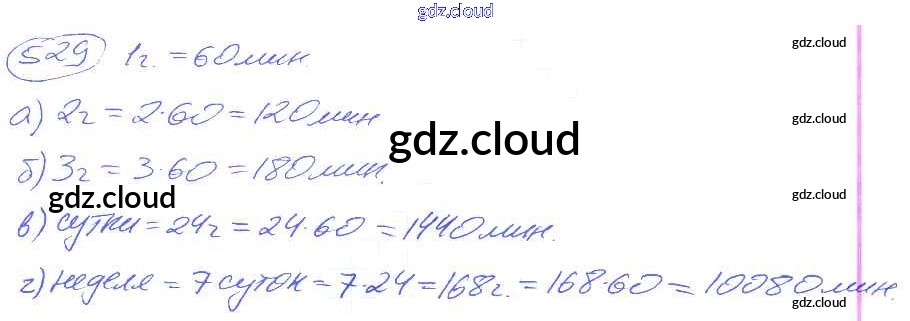 gdz.cloud
529 1г. = 60 мин.
gdz.cloud
а) 2г = 2·60 = 120 мин
gdz.cloud
gdz.cloud
б) 3г = 3·60 = 180 мин.
gdz.cloud
gdz.cloud
в) сутки = 24г = 24·60 = 1440 мин.
gdz.cloud
г) неделя = 7 суток = 7·24 = 168г. = 168·60 = 10080 мин.
gdz.cloud